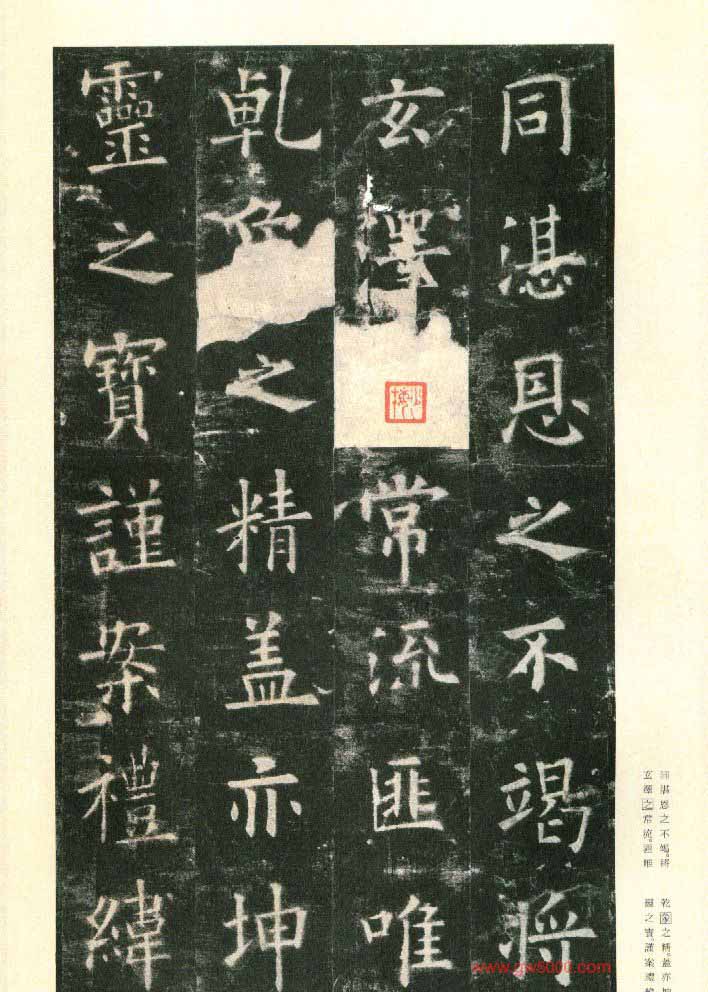 同湛恩之不竭將
玄澤常流匪唯
乹之精盖亦坤
靈之寶謹案禮緯
同湛恩之不竭。將
玄澤之常流。匪唯
乾象之精。蓋亦坤
靈之寶。謹案禮緯